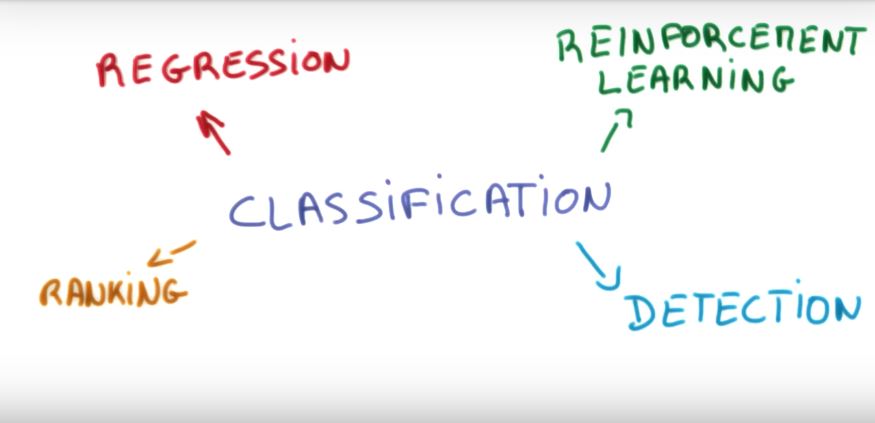 REGRESSION
REINFORCEMENT
LEARNING
CLASSIFICATION
RANKING
DETECTION